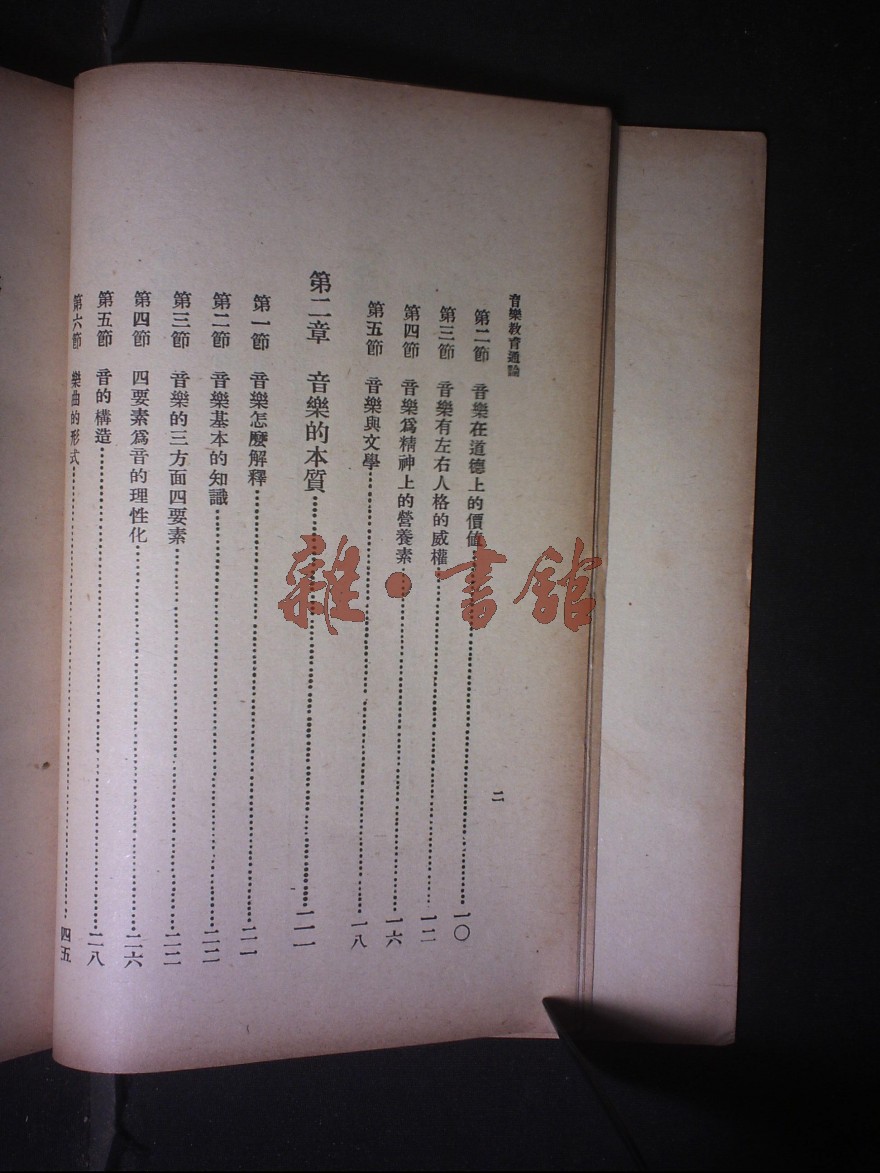 音樂教育通論
二
第二節　音樂在道德上的價值………一〇
第三節　音樂有左右人格的威權………一二
第四節　音樂爲精神上的營養素………一六
第五節　音樂與文學………一八
第二章　音樂的本質………二一
第一節　音樂怎麼解釋………二一
第二節　音樂基本的知識………二二
第三節　音樂的三方面四要素………二二
第四節　四要素爲音的理性化………二六
第五節　音的構造………二八
第六節　樂曲的形式………四五
雜·書館